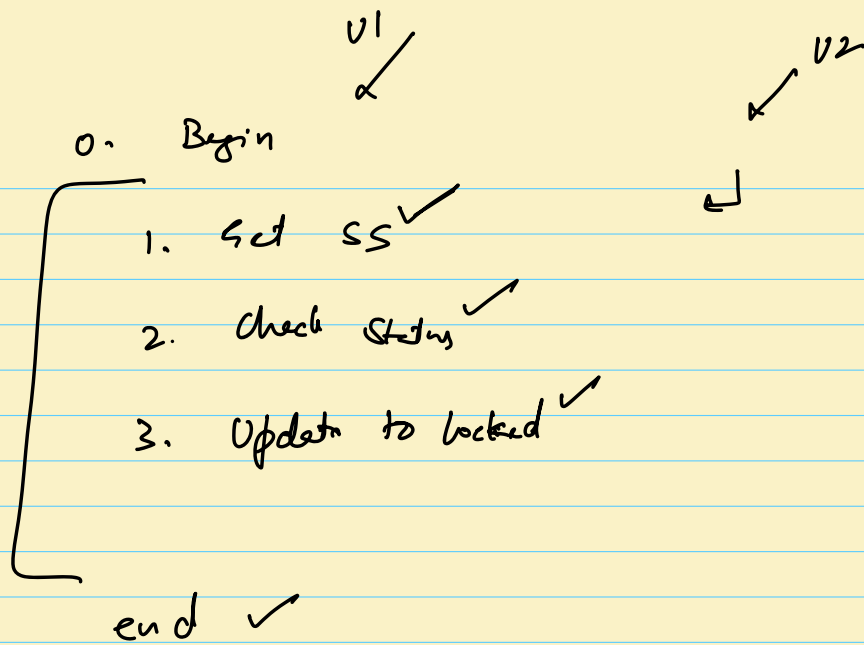 U1
U2
0. Begin
1. Get SS
2. Check Status
3. Update to locked
end